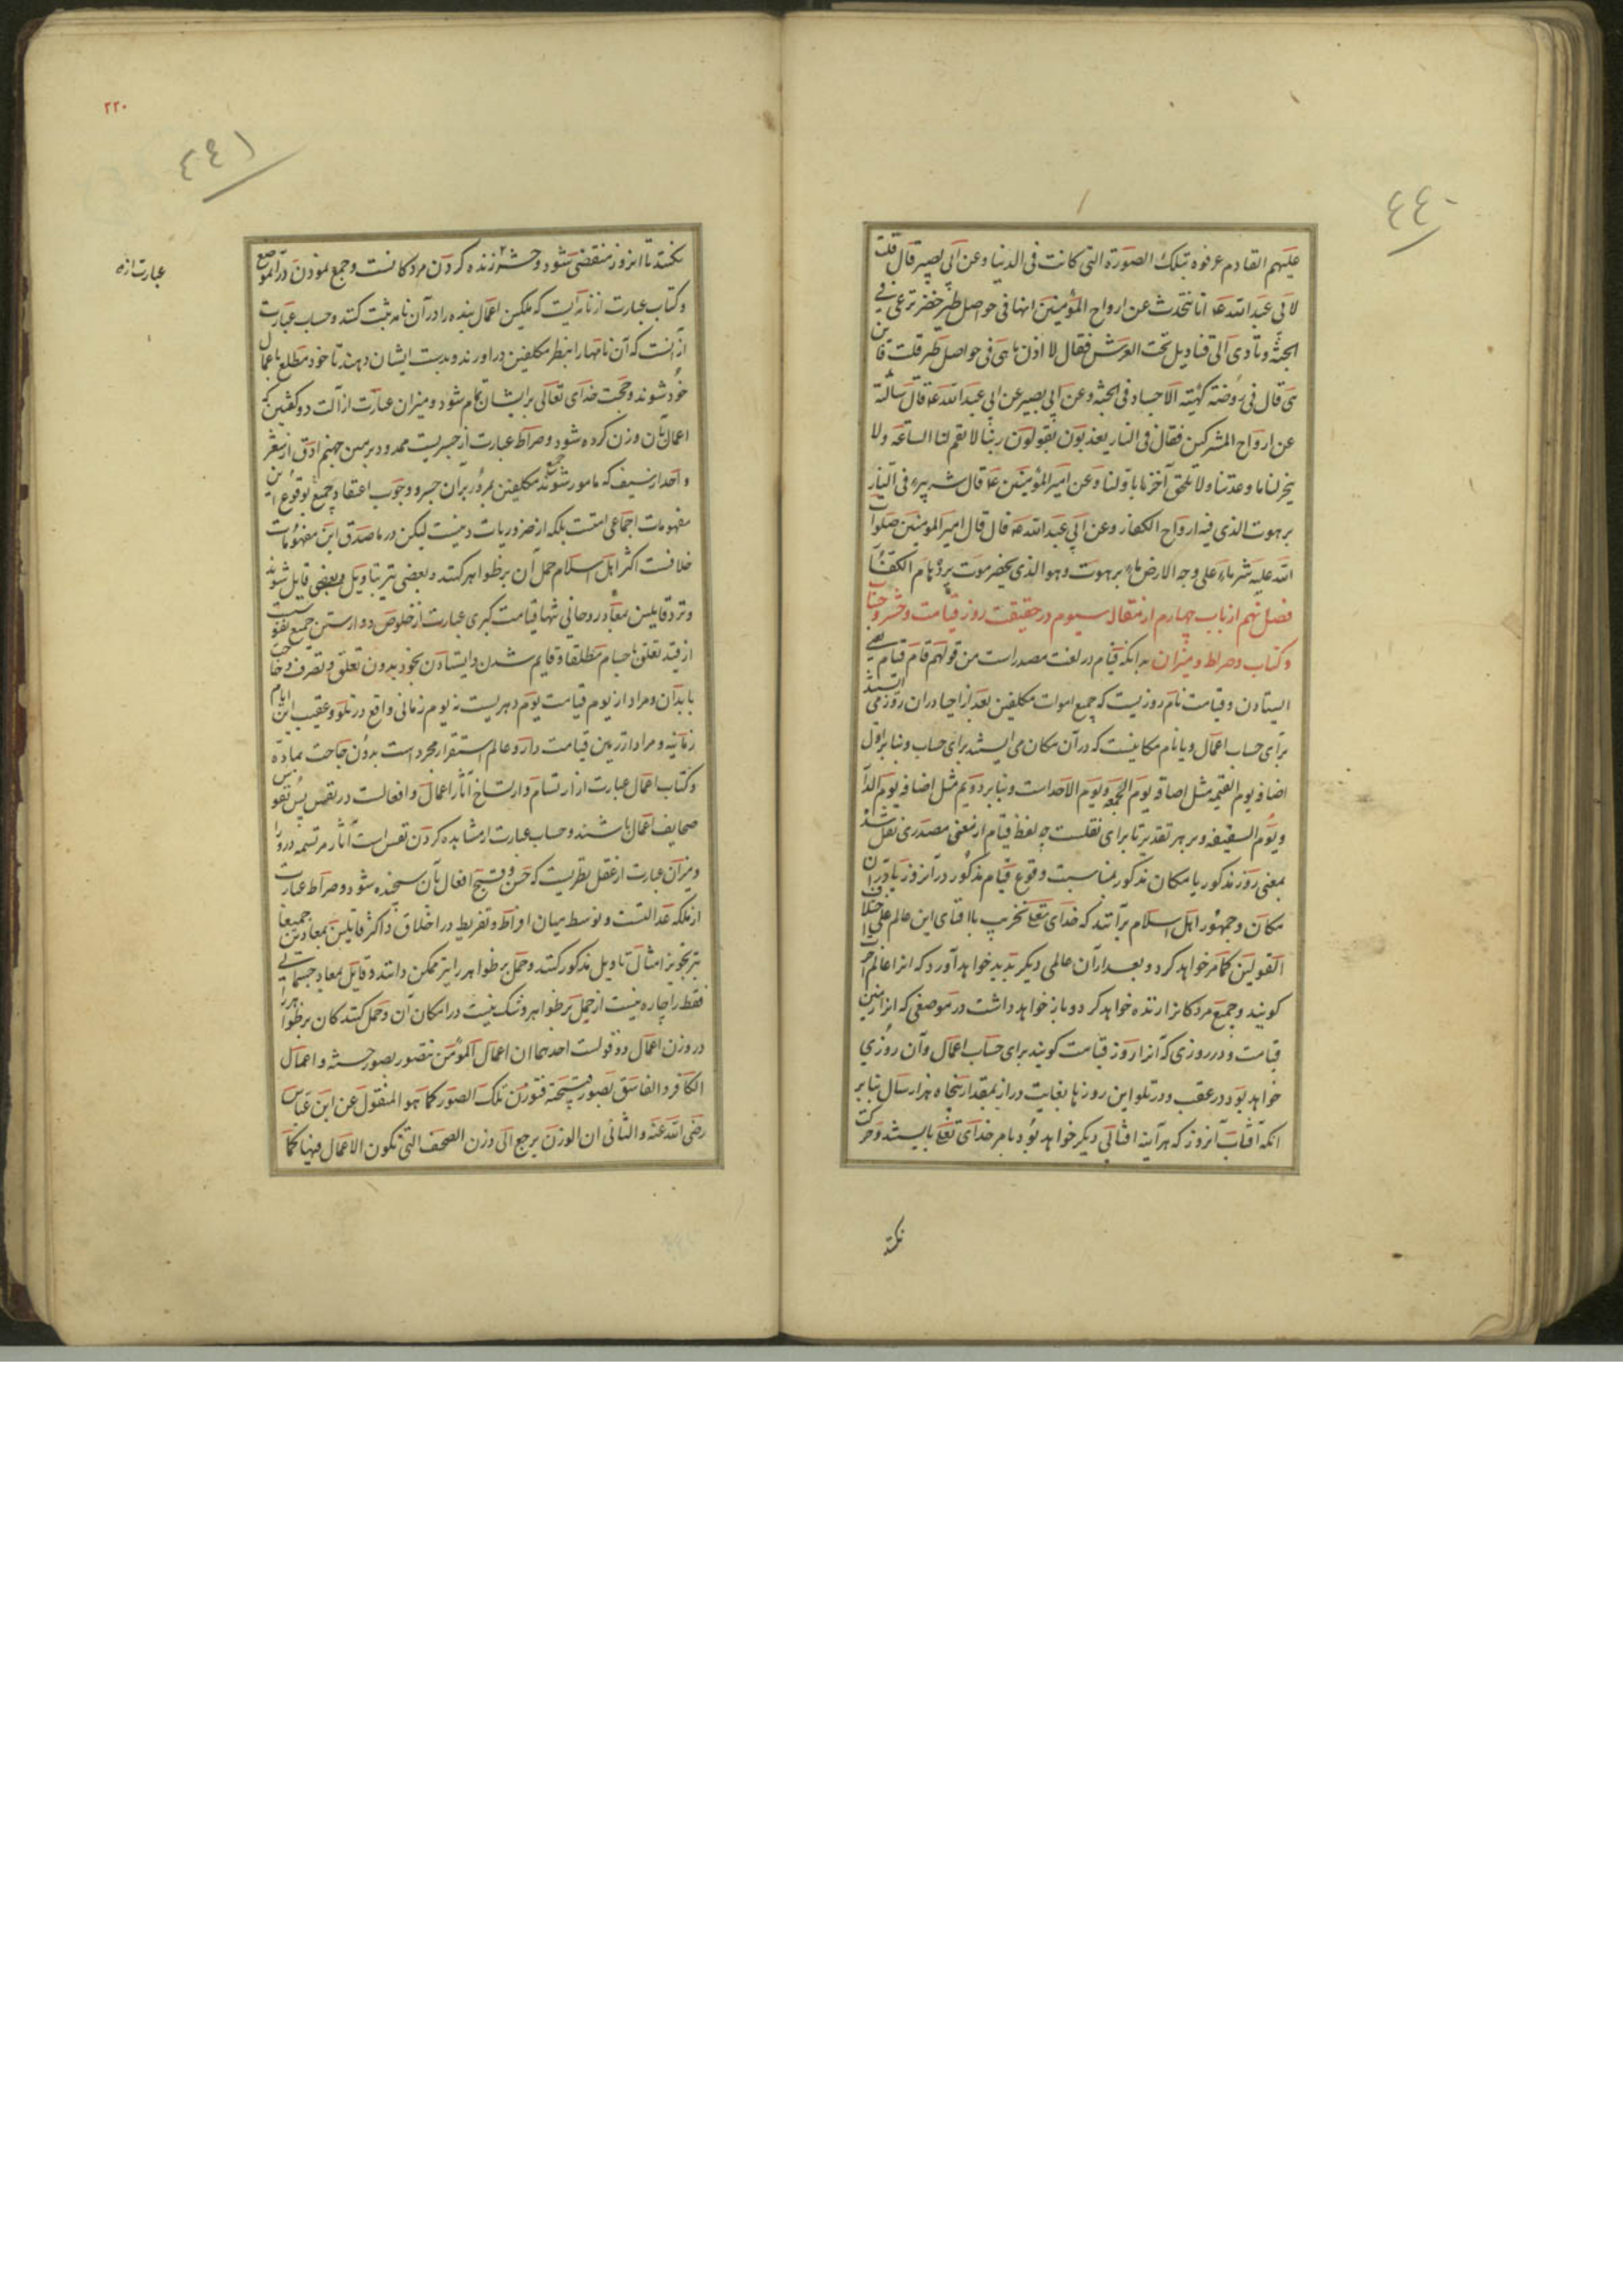 ٤٤٠
علیهم القادم عرفوه بتلک الصورة التی کانت فی الدنیا وعن ابی بصیر قال قلت
لابی عبدالله ع انا نتحدث عن ارواح المؤمنین انها فی حواصل طیر خضر ترعی فی
الجنة وتأوی الی قنادیل تحت العرش فقال لا اذن ماهی فی حواصل طیر قلت فاین
هی قال فی روضة کهیئة الاجساد فی الجنة وعن ابی بصیر عن ابی عبدالله ع قال سألته
عن ارواح المشرکین فقال فی النار یعذبون یقولون ربنا لا تقم لنا الساعة ولا
تنجز لنا ما وعدتنا ولا تلحق آخرنا باولنا وعن امیر المؤمنین ع قال شر بیر فی النار
برهوت الذی فیه ارواح الکفار وعن ابی عبدالله ع قال قال امیر المومنین صلوات
الله علیه شر ماء علی وجه الارض ماء برهوت وهو الذی بحضرموت یرد هام الکفار
فصل نهم از باب چهارم از مقاله سیوم در حقیقت روز قیامت وحشر وحساب
وکتاب وصراط ومیزان بدانکه قیام در لغت مصدر است من قولهم قام قیام یعنی
ایستادن وقیامت نام روزیست که جمیع اموات مکلفین بعد از احیا در ان روز می ایستند
برای حساب اعمال ویا نام مکانیست که در آن مکان می ایستند برای حساب وبنا بر اول
اضافه یوم القیمه مثل اضافه یوم الجمعه ویوم الاحد است وبنا بر دویم مثل اضافه یوم الدار
ویوم السقیفه وبر هر تقدیر تا برای نقلست چه لفظ قیام از معنی مصدری نقل شد
بمعنی روز مذکور یا مکان مذکور بمناسبت وقوع قیام مذکور در آنروز یا در ان
مکان وجمهور اهل اسلام برآنند که خدای تعالی تخریب یا افنای این عالم علی اختلاف
القولین کما مر خواهد کرد وبعد از آن عالمی دیگر پدید خواهد آورد که انرا عالم آخرت
گویند وجمیع مردگانرا زنده خواهد کرد وباز خواهد داشت در موضعی که انرا زمین
قیامت ودر روزی که آنرا روز قیامت گویند برای حساب اعمال وآن روزی
خواهد بود در عقب ودر تلو این روزها بغایت دراز بمقدار پنجاه هزار سال بنا بر
انکه آفتاب آنروز که هرآینه افتابی دیگر خواهد بود بامر خدای تعالی بایستد وحرکت
نکند
٢٢٠
٤٤١
نکند تا انروز منقضی شود وحشر زنده کردن مردگانست وجمع نمودن در آنموضع
وکتاب عبارت از نامه ایست که ملکین اعمال بنده را در آن نامه ثبت کنند وحساب عبارت
از آنست که آن نامهارا بنظر مکلفین در اورند وبدست ایشان دهند تا خود مطلع باعمال
خود شوند وحجت خدای تعالی بر ایشان تمام شود ومیزان عبارت از آلت دو کفین که
اعمال بآن وزن کرده شود وصراط عبارت از جسریست ممدود بر متن جهنم ادق از شعر
واحد از سیف که مامور شوند جمیع مکلفین بمرور بران جسر ووجوب اعتقاد جمیع بوقوع این
مفهومات اجماعی امتست بلکه از ضروریات دینست لیکن در ماصدق این مفهومات
خلافست اکثر اهل اسلام حمل آن بر ظواهر کنند وبعضی نیز بتاویل وبعضی قایل شوند
ونزد قایلین بمعاد روحانی تنها قیامت کبری عبارت از خلوص دوارستن جمیع نفوس
از قید تعلق باجسام مطلقا وقایم شدن وایستادن بخود بدون تعلق وتصرف وحاجت
بابدان ومراد از یوم قیامت یوم دهریست نه یوم زمانی واقع در تلو وعقیب این ایام
زمانیه ومراد از زمین قیامت دار وعالم استقرار مجرد است بدون حاجت بماده
وکتاب اعمال عبارت از ارتسام وارتساخ آثار اعمال وافعالست در نفس پس نفوس
صحایف اعمال باشند وحساب عبارت از مشاهده کردن نفس است آثار مرتسمه در او را
ومیزان عبارت از عقل نظریست که حسن وقبح افعال بآن سنجیده شود وصراط عبارت
از ملکه عدالتست وتوسط میان افراط وتفریط در اخلاق واکثر قایلین بمعادین جمیعا
نیز تجویز امثال تاویل مذکور کنند وحمل بر ظواهر را نیز ممکن دانند وقایل بمعاد جسمانی
فقط را چاره نیست از حمل بر ظواهر وشک نیست در امکان آن وحمل کنندگان بر ظواهر را
در وزن اعمال دو قولست احدهما ان اعمال المؤمن تتصور بصور حسنة واعمال
الکافر والفاسق بصور قبیحة فتوزن تلک الصور کما هو المنقول عن ابن عباس
رضی الله عنه والثانی ان الوزن یرجع الی وزن الصحف التی تکون الاعمال فیها کما